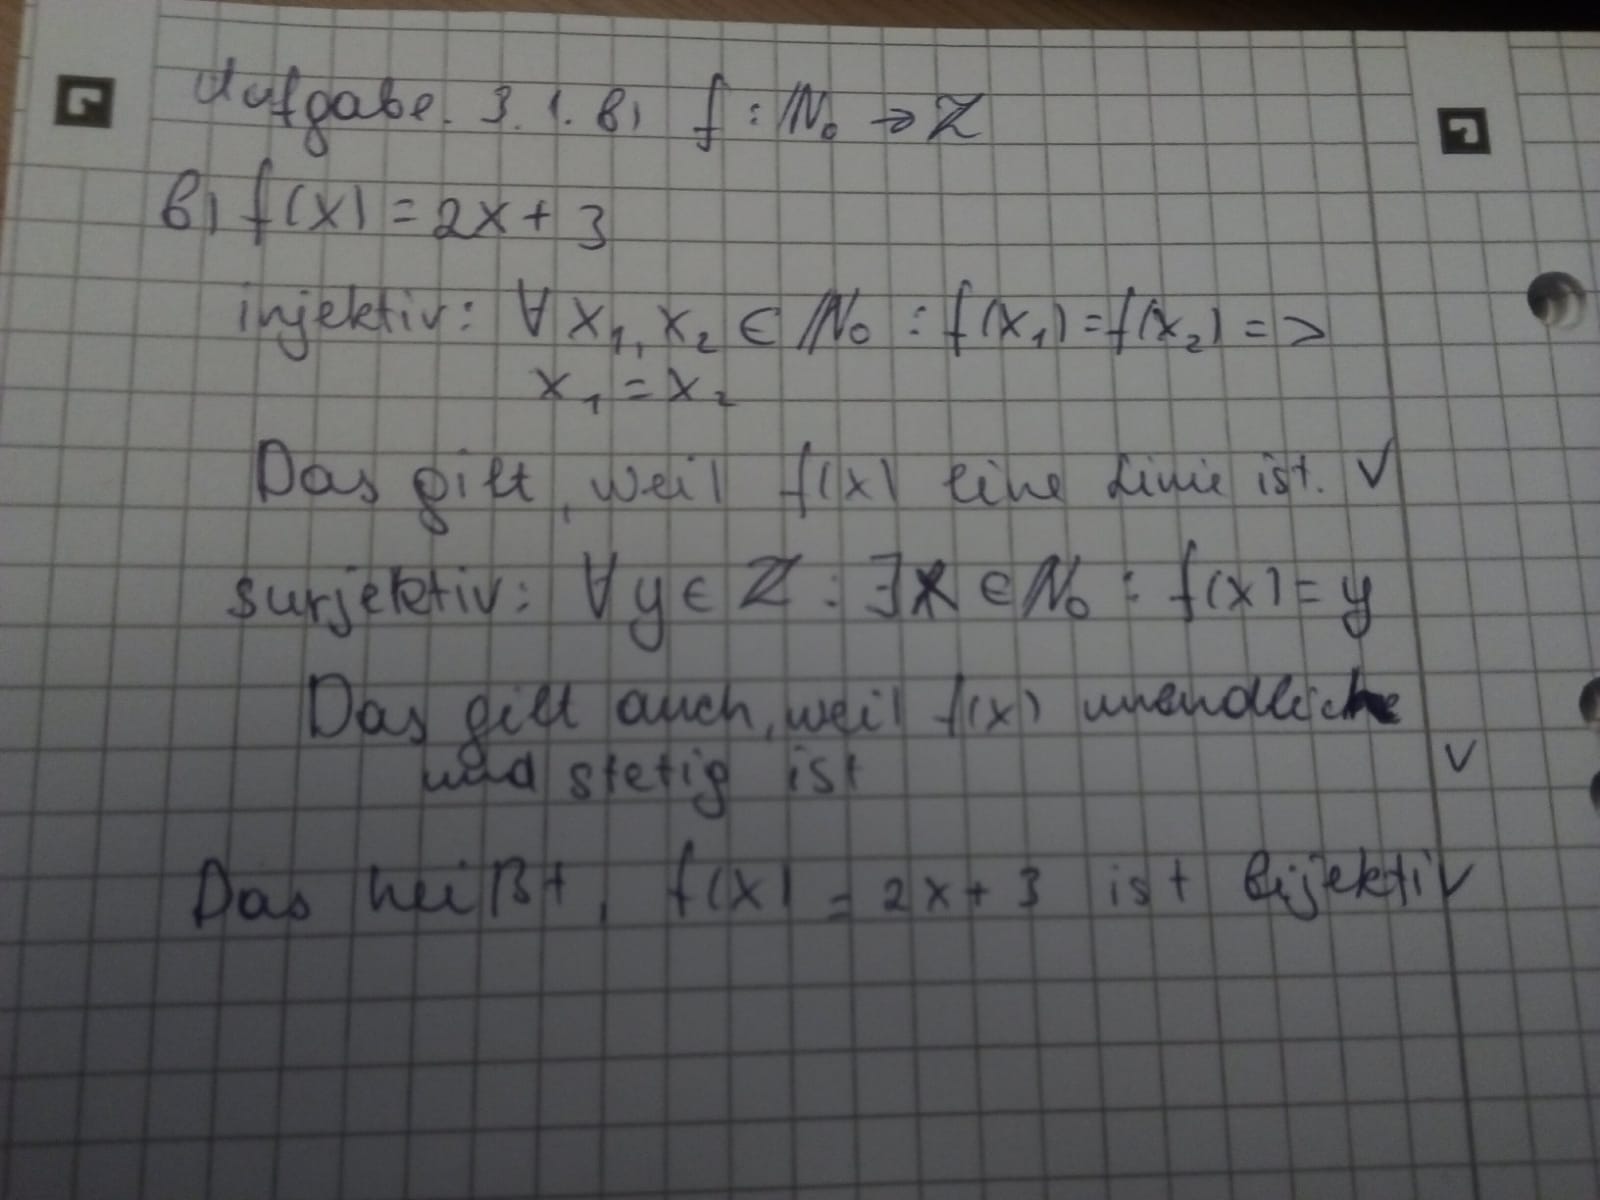 Aufgabe. 3.1. b) f : ℕ₀ → ℤ
b) f(x) = 2x + 3
injektiv: ∀ x₁, x₂ ∈ ℕ₀ : f(x₁) = f(x₂) =>
x₁ = x₂
Das gilt, weil f(x) eine Linie ist. ✓
surjektiv: ∀ y ∈ ℤ : ∃ x ∈ ℕ₀ : f(x) = y
Das gilt auch, weil f(x) unendlich
und stetig ist ✓
Das heißt, f(x) = 2x + 3 ist bijektiv